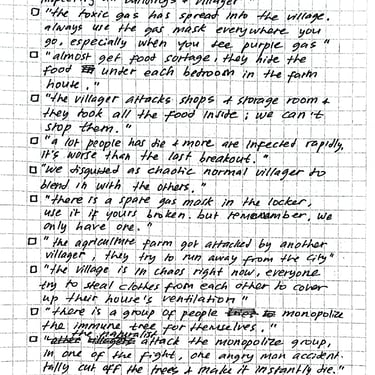 "the toxic gas has spread into the village.
always use the gas mask everywhere you
go, especially when you see purple gas"
"almost get food sortage, they hide the
food under each bedroom in the farm
house."
"the villager attacks shops & storage room &
they took all the food inside; we can't
stop them."
"a lot people has die & more are infected rapidly,
it's worse than the last breakout."
"we disguted as chaotic normal villager to
blend in with the others."
"there is a spare gas mask in the locker,
use it if yours broken. but remember, we
only have one."
"the agriculture farm got attacked by another
villager, they try to run away from the city"
"the village is in chaos right now, everyone
try to steal clothes from each other to cover
up their house's ventilation"
"there is a group of people monopolize
the immune tree for themselves."
"the naturalise attack the monopolize group,
in one of the fight, one angry man acciden
tally cut off the trees & make it instantly die."